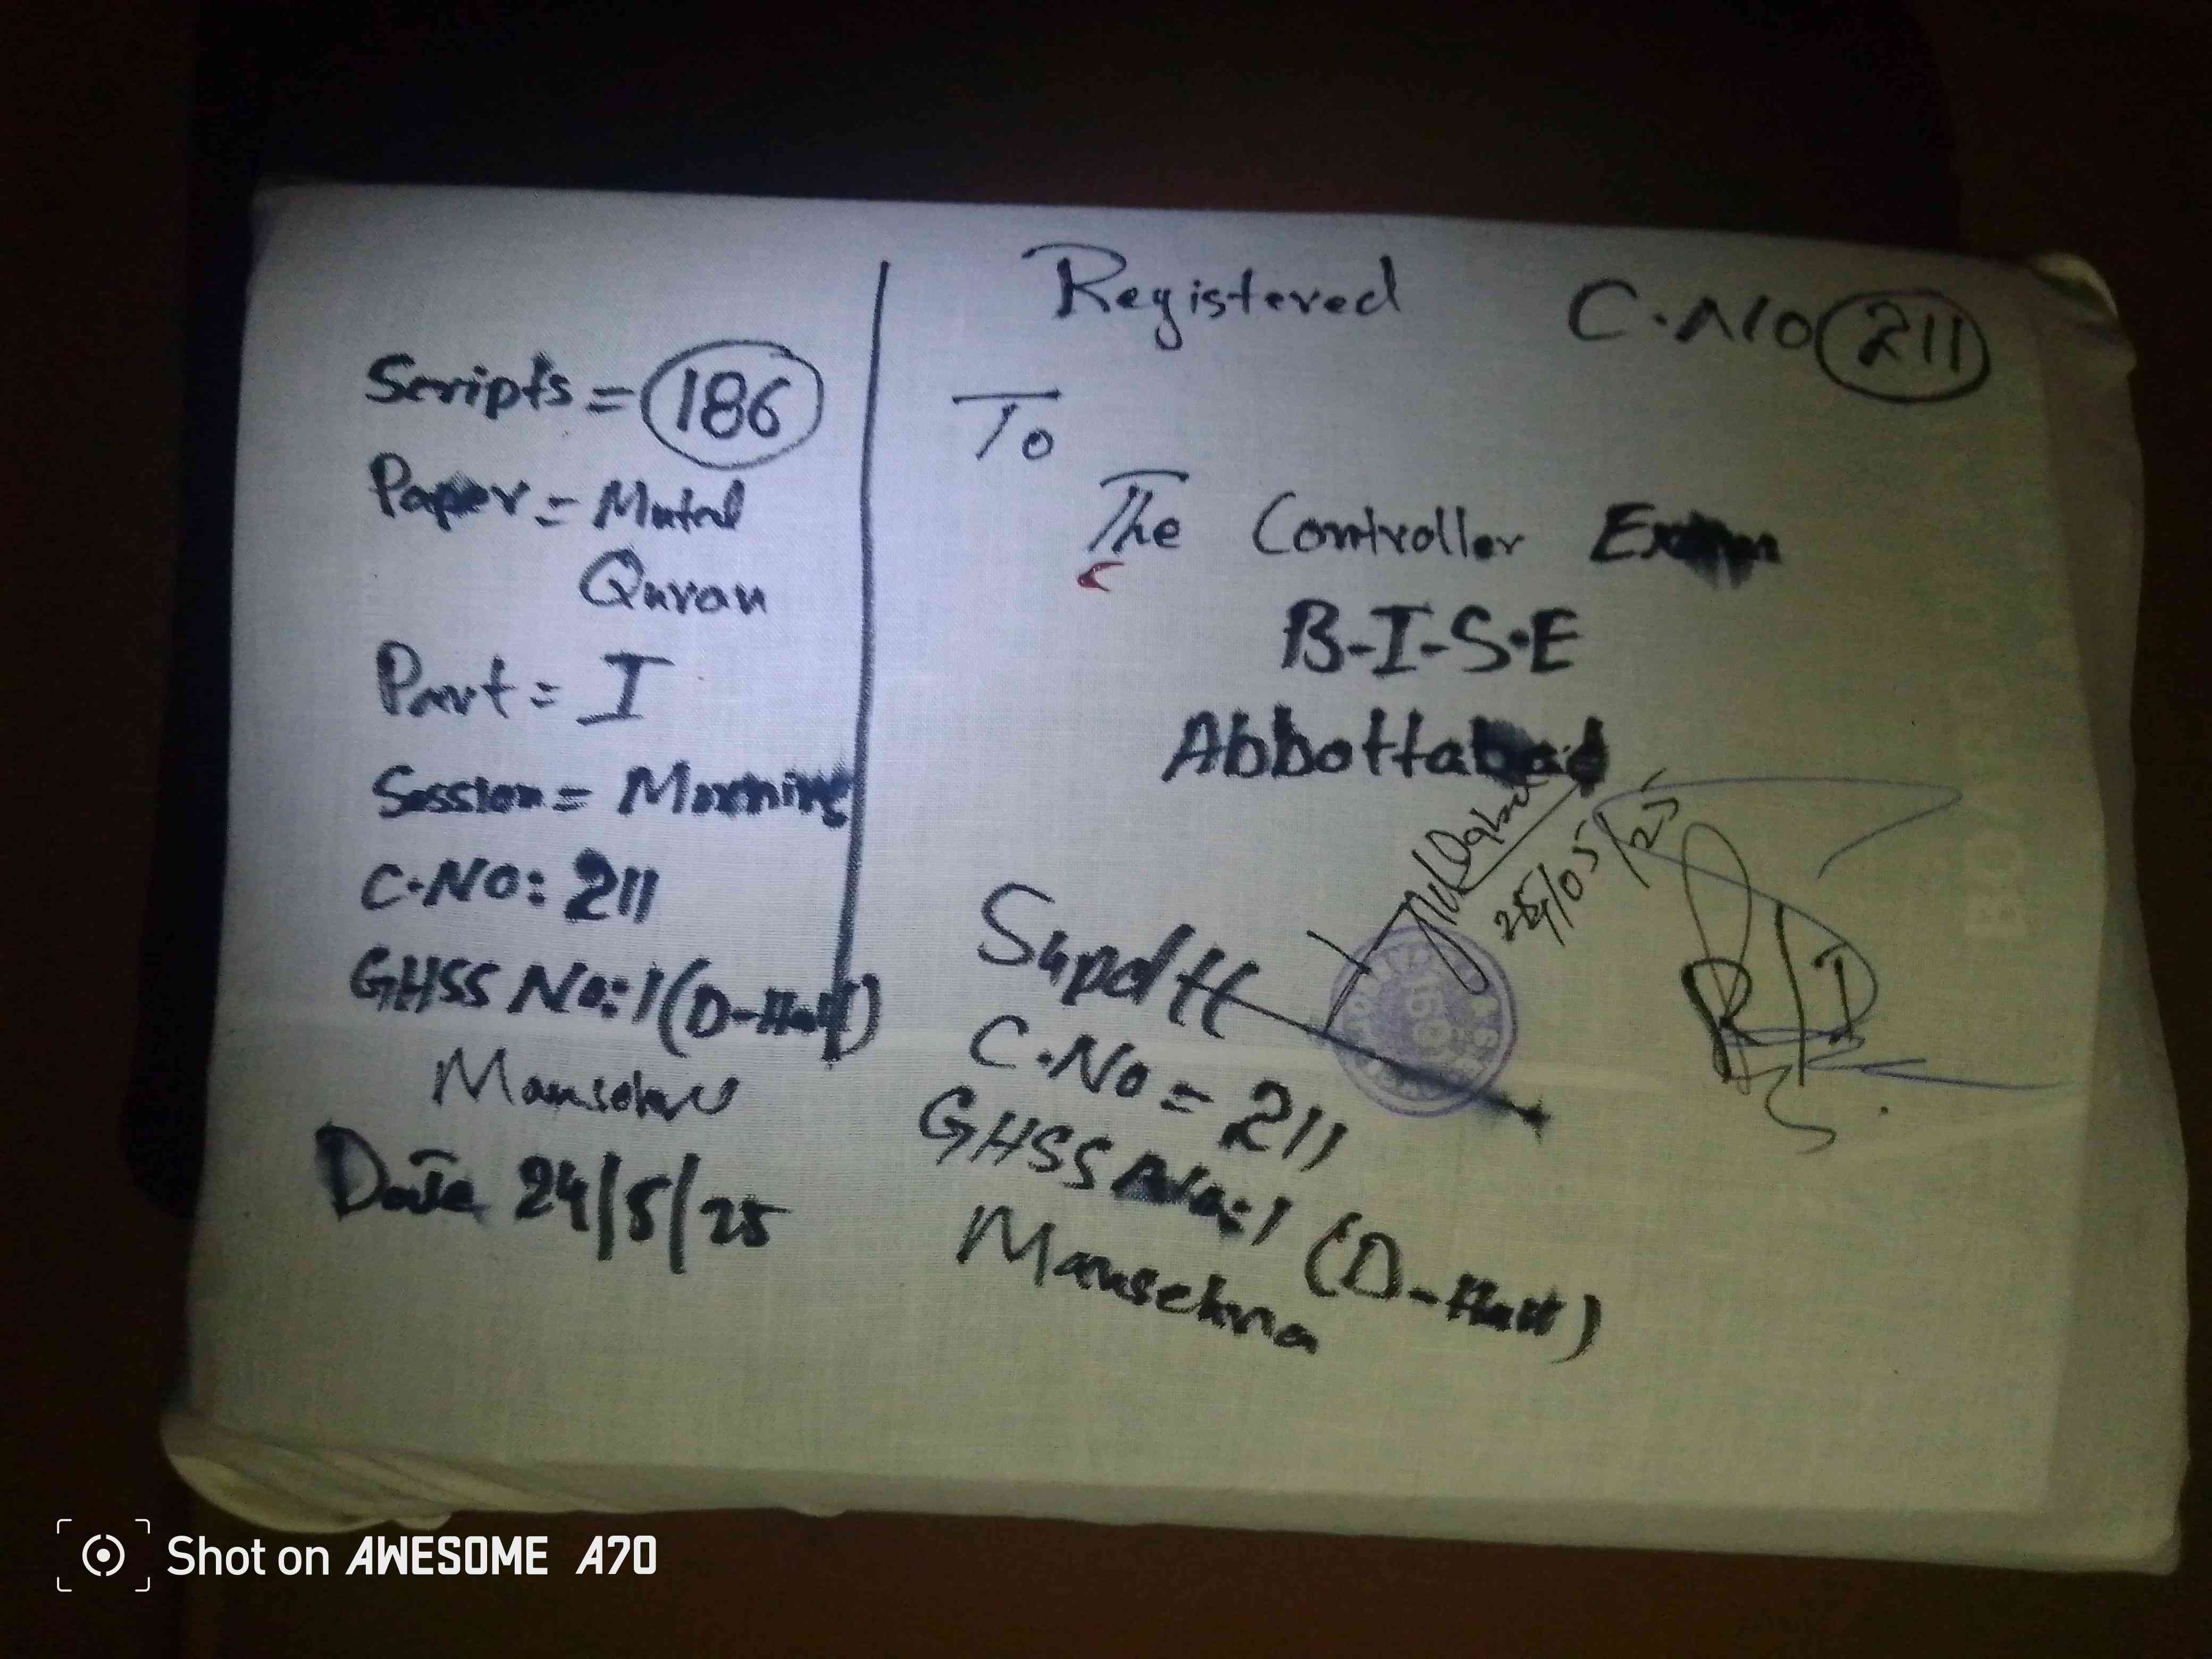 Scripts = 186
Paper = Mutal
Quran
Part = I
Session = Morning
C-NO: 211
GHSS No: 1 (D-Hall)
Mansehra
Date 24/5/25
Registered C.No 211
To
The Controller Exam
B-I-S-E
Abbottabad
/05/25
R/I
Supdtt
C.No = 211
GHSS No: 1 (D-Hall)
Mansehra
Shot on AWESOME A70